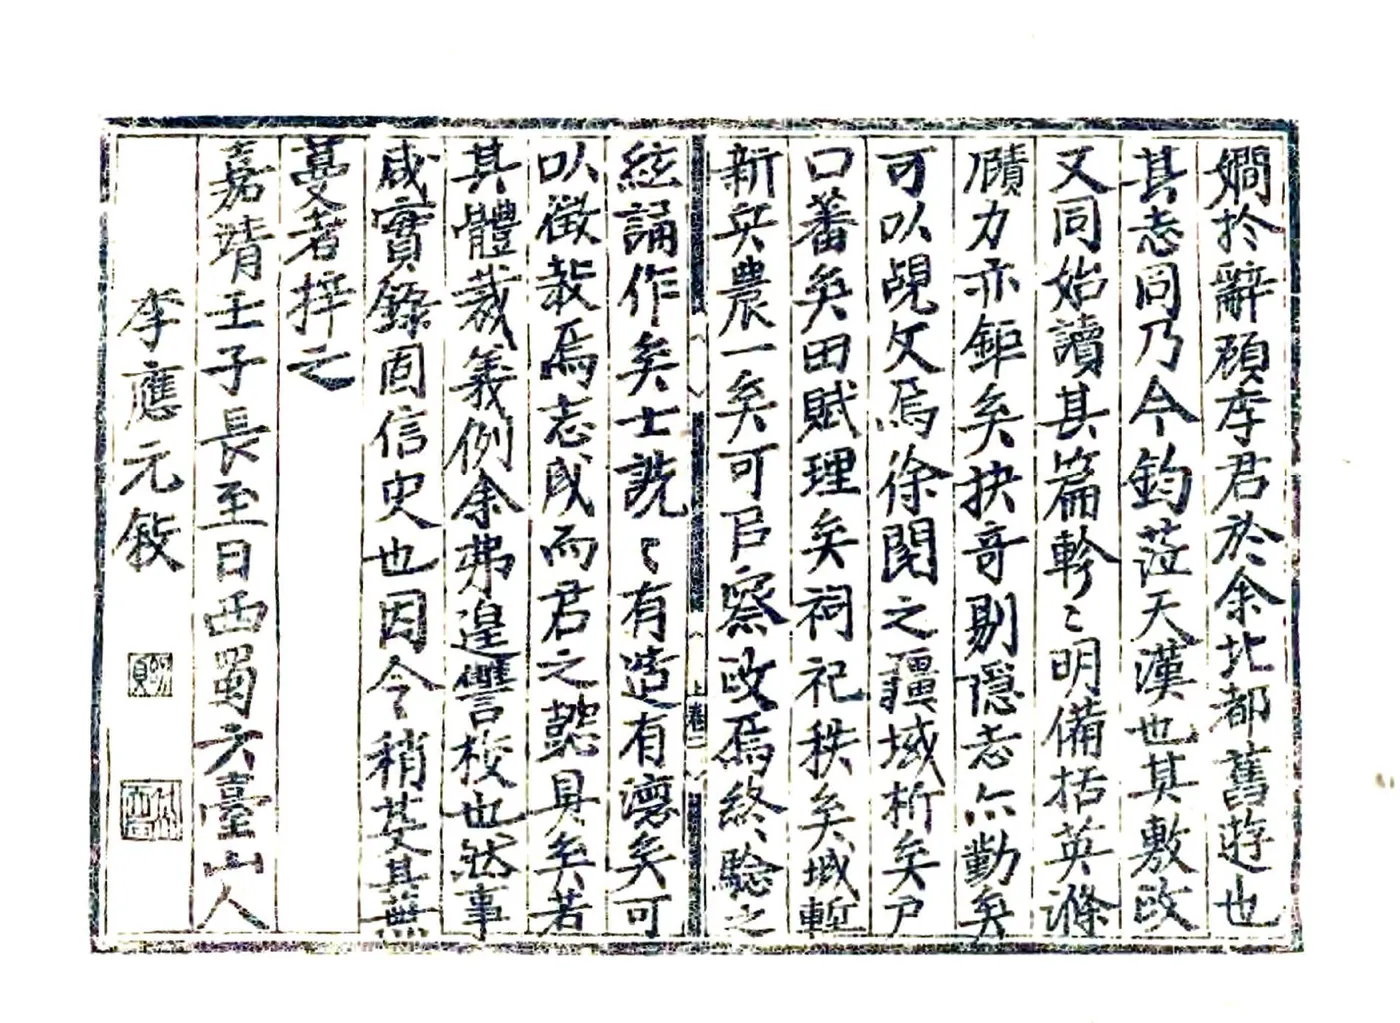 嫺於辭頋李君於余北都舊遊也
其志同乃今鈞蒞天漢也其敷政
又同始讀其篇軫〻明備括英滌
賾力亦鉅矣抉奇剔隱志亦勤矣
可以覘文焉徐閱之疆域析矣户
口蕃矣田賦理矣祠祀秩矣城塹
新矣農一矣可㠯察政焉終驗之
絃誦作矣士詵〻有造有德矣可
以徵教焉志成而君之懿具矣若
其體裁義例余弗遑讐校也然事
咸實錄固信史也因令稍芟其蕪
蔓者梓之
嘉靖壬子長至日西蜀六臺山人
李應元敘
上卷二